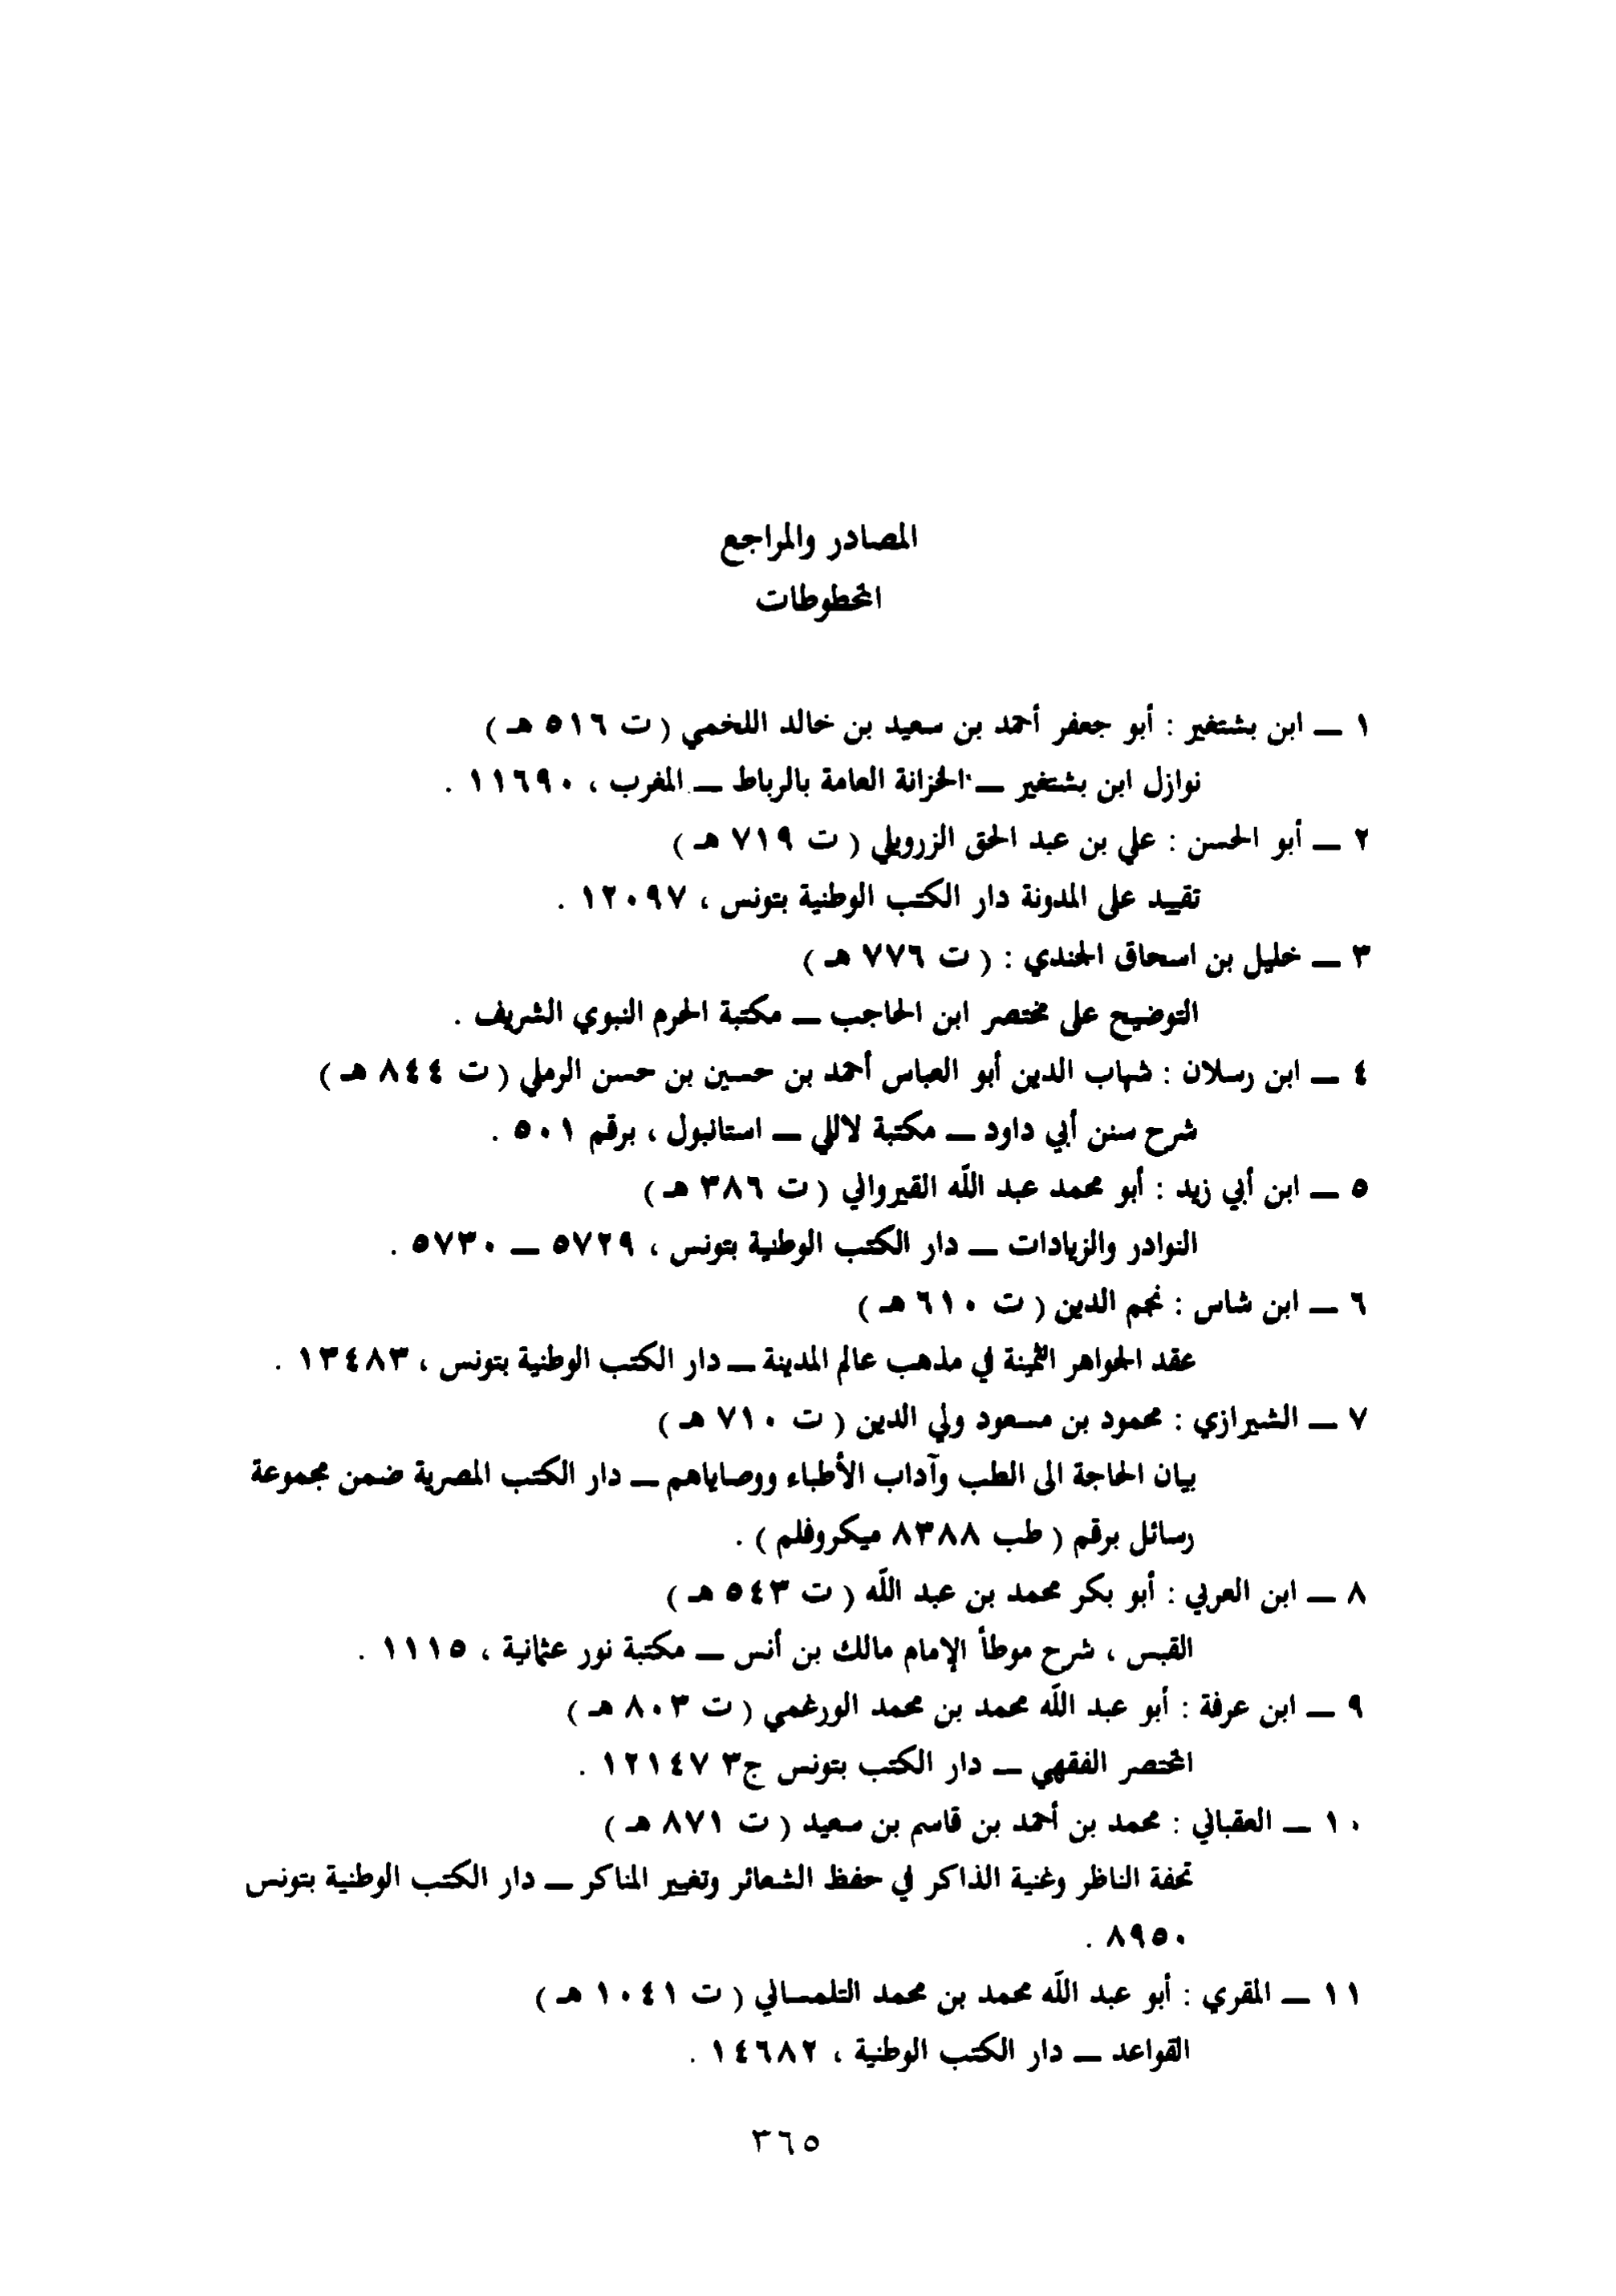 المصادر والمراجع
المخطوطات
١ — ابن بشتغير : أبو جعفر أحمد بن سعيد بن خالد اللخمي ( ت ٥١٦ هـ )
نوازل ابن بشتغير — الخزانة العامة بالرباط — المغرب ، ١١٦٩٠ .
٢ — أبو الحسن : علي بن عبد الحق الزرويلي ( ت ٧١٩ هـ )
تقييد على المدونة دار الكتب الوطنية بتونس ، ١٢٠٩٧ .
٣ — خليل بن اسحاق الجندي : ( ت ٧٧٦ هـ )
التوضيح على مختصر ابن الحاجب — مكتبة الحرم النبوي الشريف .
٤ — ابن رسلان : شهاب الدين أبو العباس أحمد بن حسين بن حسن الرملي ( ت ٨٤٤ هـ )
شرح سنن أبي داود — مكتبة لاللي — استانبول ، برقم ٥٠١ .
٥ — ابن أبي زيد : أبو محمد عبد اللّه القيرواني ( ت ٣٨٦ هـ )
النوادر والزيادات — دار الكتب الوطنية بتونس ، ٥٧٢٩ — ٥٧٣٠ .
٦ — ابن شاس : نجم الدين ( ت ٦١٠ هـ )
عقد الجواهر الثمينة في مذهب عالم المدينة — دار الكتب الوطنية بتونس ، ١٣٤٨٣ .
٧ — الشيرازي : محمود بن مسعود ولي الدين ( ت ٧١٠ هـ )
بيان الحاجة الى الطب وآداب الأطباء ووصاياهم — دار الكتب المصرية ضمن مجموعة
رسائل برقم ( طب ٨٣٨٨ ميكروفلم ) .
٨ — ابن العربي : أبو بكر محمد بن عبد اللّه ( ت ٥٤٣ هـ )
القبس ، شرح موطأ الإمام مالك بن أنس — مكتبة نور عثمانية ، ١١١٥ .
٩ — ابن عرفة : أبو عبد اللّه محمد بن محمد الورغمي ( ت ٨٠٣ هـ )
المختصر الفقهي — دار الكتب بتونس ج٣ ١٢١٤٧ .
١٠ — العقباني : محمد بن أحمد بن قاسم بن سعيد ( ت ٨٧١ هـ )
تحفة الناظر وغنية الذاكر في حفظ الشعائر وتغيير المناكر — دار الكتب الوطنية بتونس
٨٩٥٠ .
١١ — المقري : أبو عبد اللّه محمد بن محمد التلمساني ( ت ١٠٤١ هـ )
القواعد — دار الكتب الوطنية ، ١٤٦٨٢ .
٣٦٥